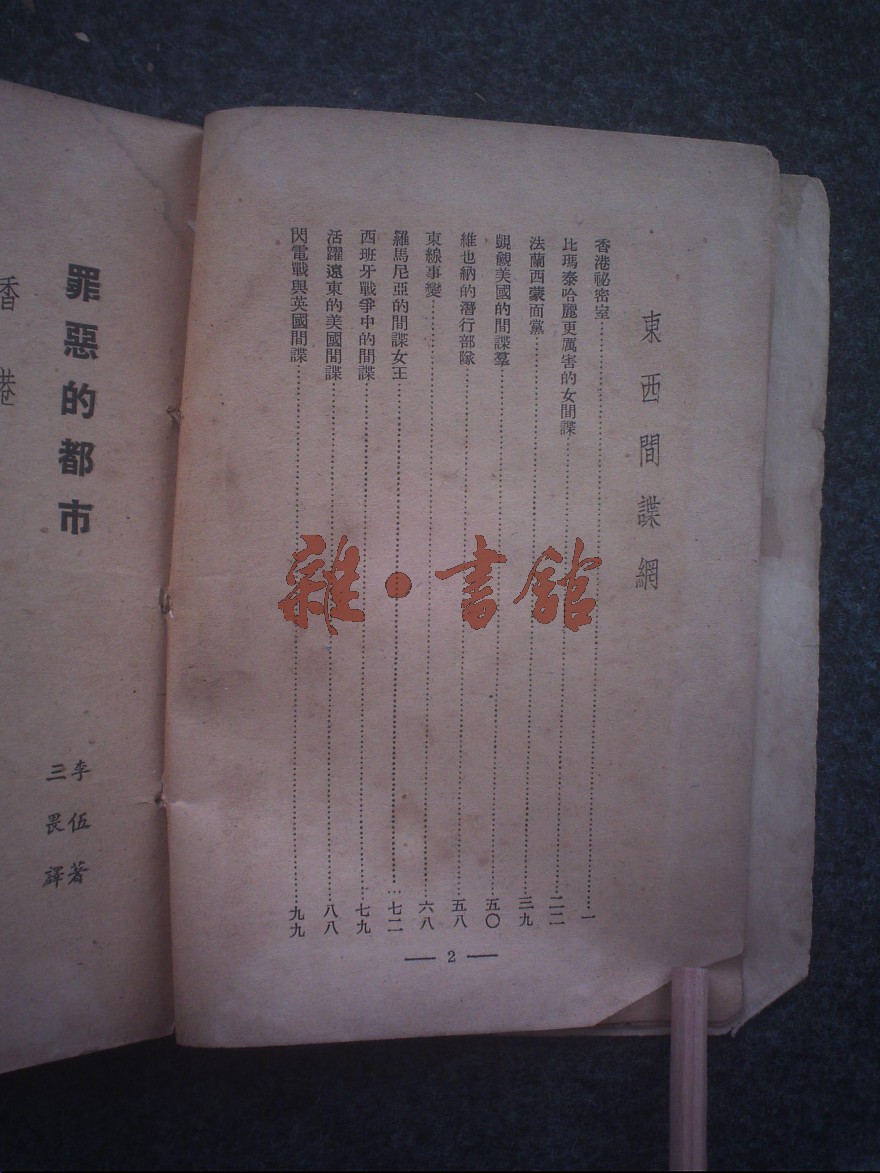 東西間諜網
香港祕密室……一
比瑪泰哈麗更厲害的女間諜……二二
法蘭西蒙面黨……三九
覬覦美國的間諜羣……五〇
維也納的潛行部隊……五八
東線事變……六八
羅馬尼亞的間諜女王……七二
西班牙戰爭中的間諜……七九
活躍遠東的美國間諜……八八
閃電戰與英國間諜……九九
— 2 —
罪惡的都市
李伍著
三畏譯
香港
雜·書館